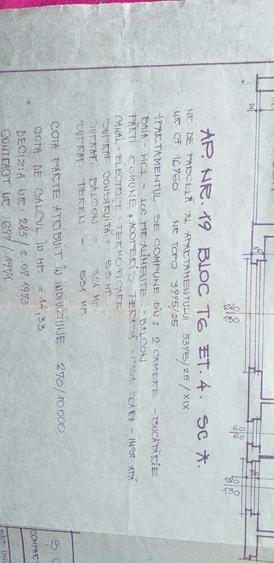 AP. NR. 19 BLOC T6 ET. 4. SC A.
NR DE PARCELĂ AL APARTAMENTULUI 3395/25/XIX
NR CF 16760 NR TOPO 3995/25
APARTAMENTUL SE COMPUNE DIN: 2 CAMERE - BUCĂTĂRIE
BAIA - HOL - LOC PTR ALIMENTE - BALCON
PARTI COMUNE: ACOPERIS TERASĂ - CASA SCARI - INST APĂ
CANAL - ELECTRICE - TERMOFICARE
SUPRAF. CONSTRUITĂ = 53 MP
SUPRAF. BALCON =
SUPRAF. TEREN = 531 MP
COTA PARTE ATRIBUIT IN INDIVIZIUNE 270/10000
COTA DE CALCUL IN MP = 14,33
DECIZIA NR 283/2.07.1973
CONTRACT NR